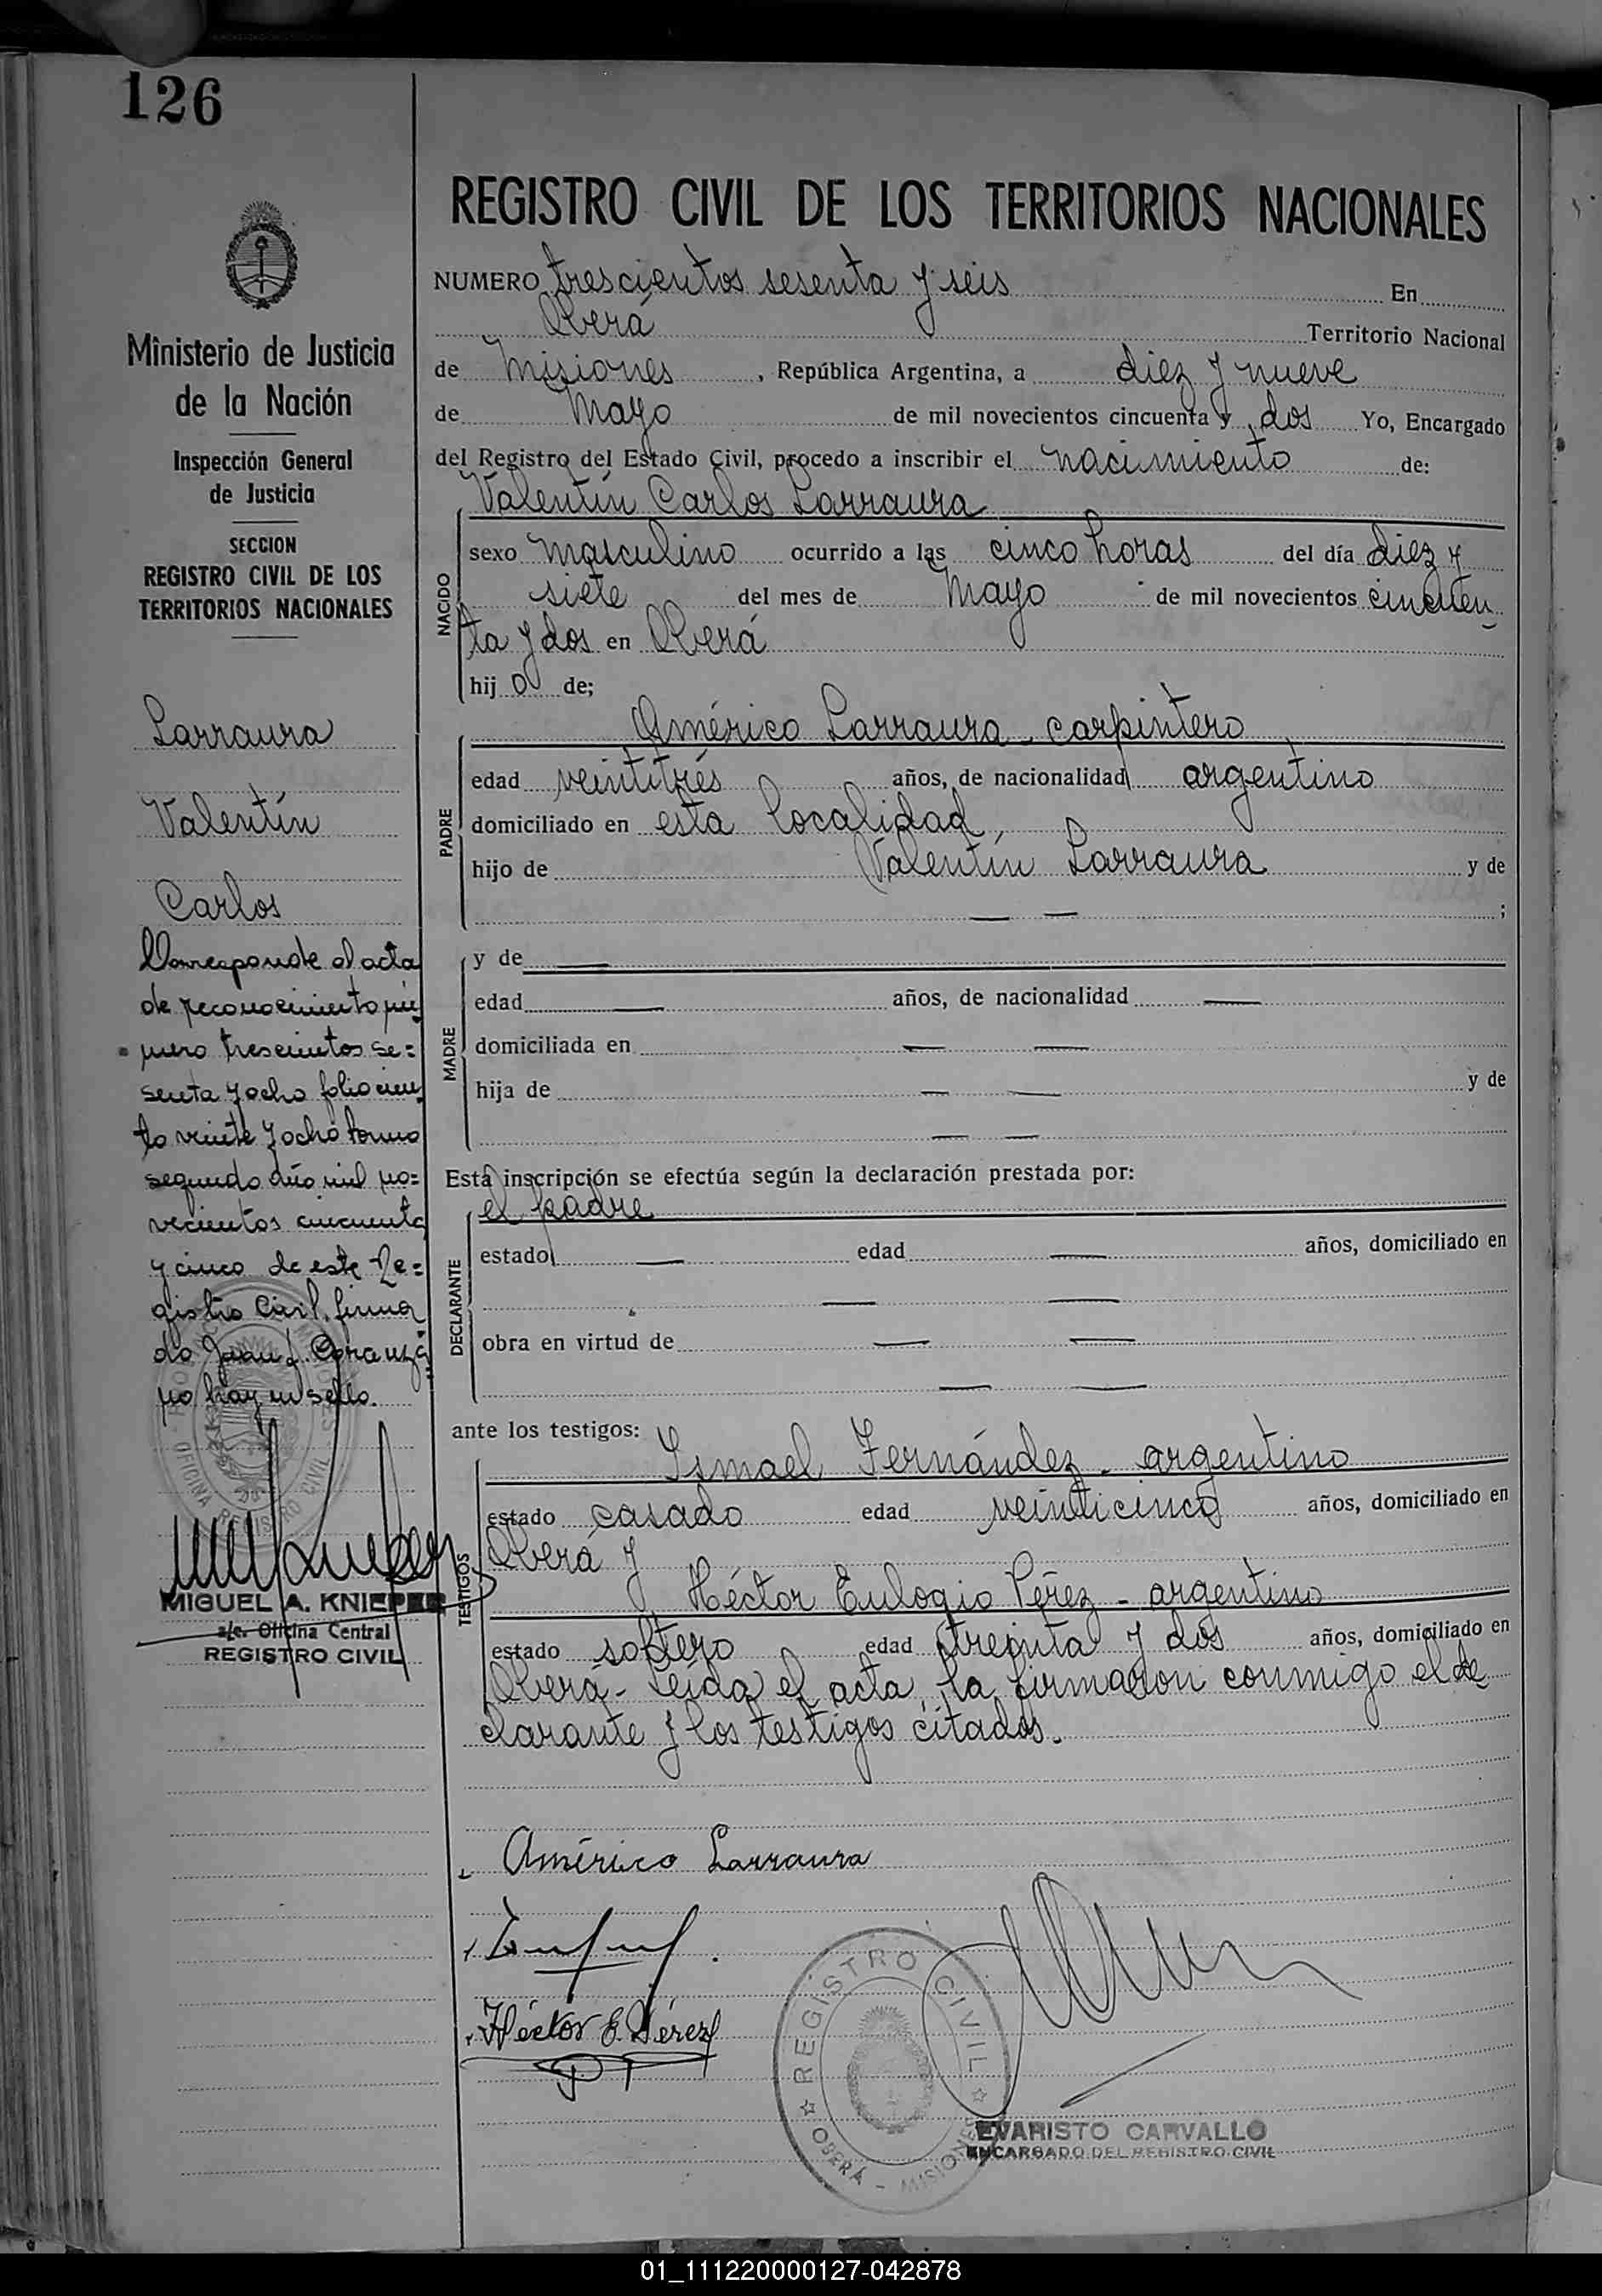 126
Ministerio de Justicia
de la Nación
Inspección General
de Justicia
SECCION
REGISTRO CIVIL DE LOS
TERRITORIOS NACIONALES
Larraura
Valentín
Carlos
Corresponde al acta
de reconocimiento nú
mero trescientos se=
senta y ocho folio cien
to veinte y ocho tomo
segundo año mil no=
vecientos cincuenta
y cinco de este Re=
gistro Civil, firma
do Juan
no hay un sello.
OFICINA REGISTRO CIVIL
MIGUEL A. KNIEPER
a/c. Oficina Central
REGISTRO CIVIL
REGISTRO CIVIL DE LOS TERRITORIOS NACIONALES
NUMERO trescientos sesenta y seis En
Oberá Territorio Nacional
de Misiones, República Argentina, a diez y nueve
de Mayo de mil novecientos cincuenta y dos Yo, Encargado
del Registro del Estado Civil, procedo a inscribir el nacimiento de:
Valentín Carlos Larraura
NACIDO
sexo masculino ocurrido a las cinco horas del día diez y
siete del mes de Mayo de mil novecientos cincuen
ta y dos en Oberá
hijo de;
Américo Larraura - carpintero
PADRE
edad veintitrés años, de nacionalidad argentino
domiciliado en esta localidad,
hijo de Valentín Larraura y de
— — ;
MADRE
y de —
edad — años, de nacionalidad —
domiciliada en — —
hija de — — y de
— —
Esta inscripción se efectúa según la declaración prestada por:
el padre
DECLARANTE
estado — edad — años, domiciliado en
— —
obra en virtud de — —
— —
ante los testigos:
Ismael Fernández - argentino
TESTIGOS
estado casado edad veinticinco años, domiciliado en
Oberá y
Héctor Eulogio Pérez - argentino
estado soltero edad treinta y dos años, domiciliado en
Oberá - Leída el acta, la firmaron conmigo el de
clarante y los testigos citados.
Américo Larraura
Héctor E. Pérez
REGISTRO CIVIL
OBERÁ - MISIONES
EVARISTO CARVALLO
ENCARGADO DEL REGISTRO CIVIL
01_111220000127-042878